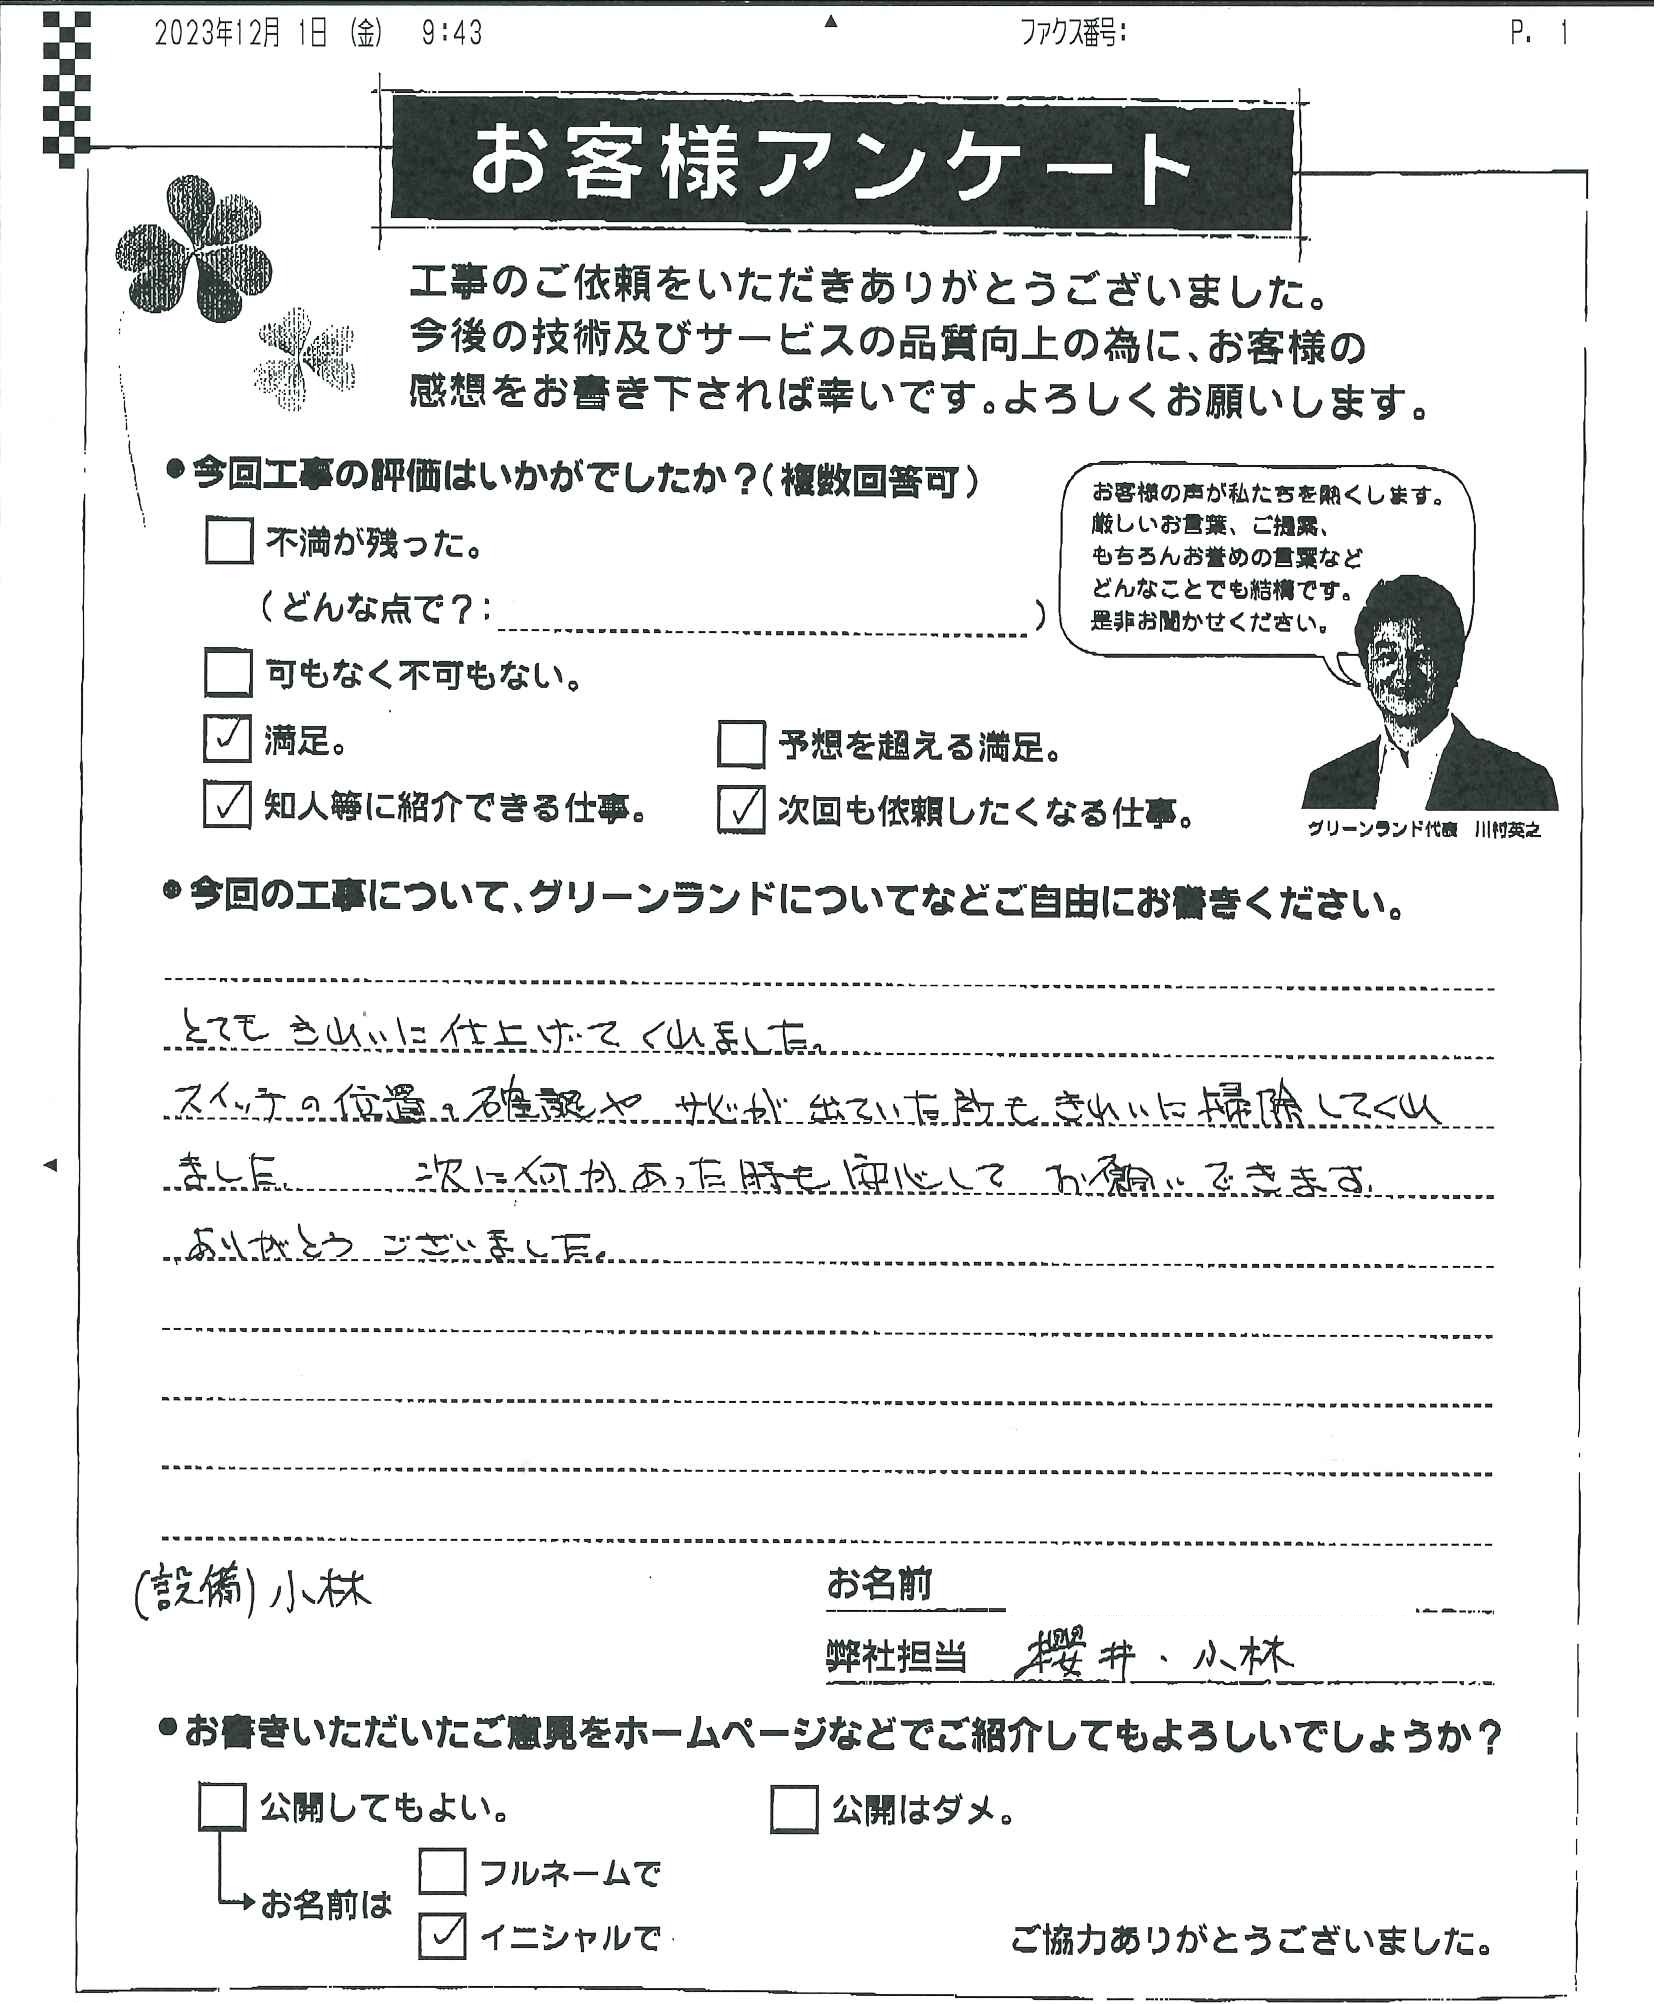 2023年12月 1日 (金) 9:43 ファクス番号: P. 1
お客様アンケート
工事のご依頼をいただきありがとうございました。
今後の技術及びサービスの品質向上の為に、お客様の
感想をお書き下されば幸いです。よろしくお願いします。
●今回工事の評価はいかがでしたか？(複数回答可)
不満が残った。
(どんな点で？: )
可もなく不可もない。
✓ 満足。
予想を超える満足。
✓ 知人等に紹介できる仕事。
✓ 次回も依頼したくなる仕事。
お客様の声が私たちを熱くします。
厳しいお言葉、ご提案、
もちろんお誉めの言葉など
どんなことでも結構です。
是非お聞かせください。
グリーンランド代表 川村英之
●今回の工事について、グリーンランドについてなどご自由にお書きください。
とても きれいに 仕上げて くれました。
スイッチの位置の確認や サビが 出ていた所も きれいに 掃除してくれ
ました。 次に何かあった時も 安心して お願いできます。
ありがとう ございました。
(設備)小林
お名前
弊社担当 櫻井・小林
●お書きいただいたご意見をホームページなどでご紹介してもよろしいでしょうか？
公開してもよい。
公開はダメ。
お名前は
フルネームで
✓ イニシャルで
ご協力ありがとうございました。